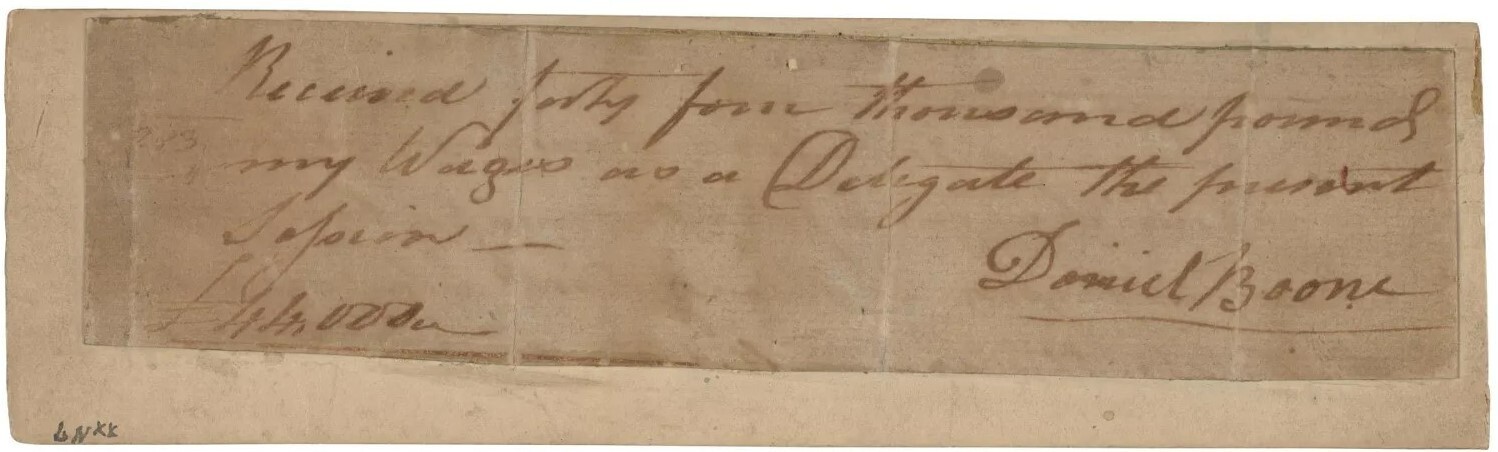 Received forty four thousand pounds
my Wages as a Delegate the present
Session —
£44,000
Daniel Boone